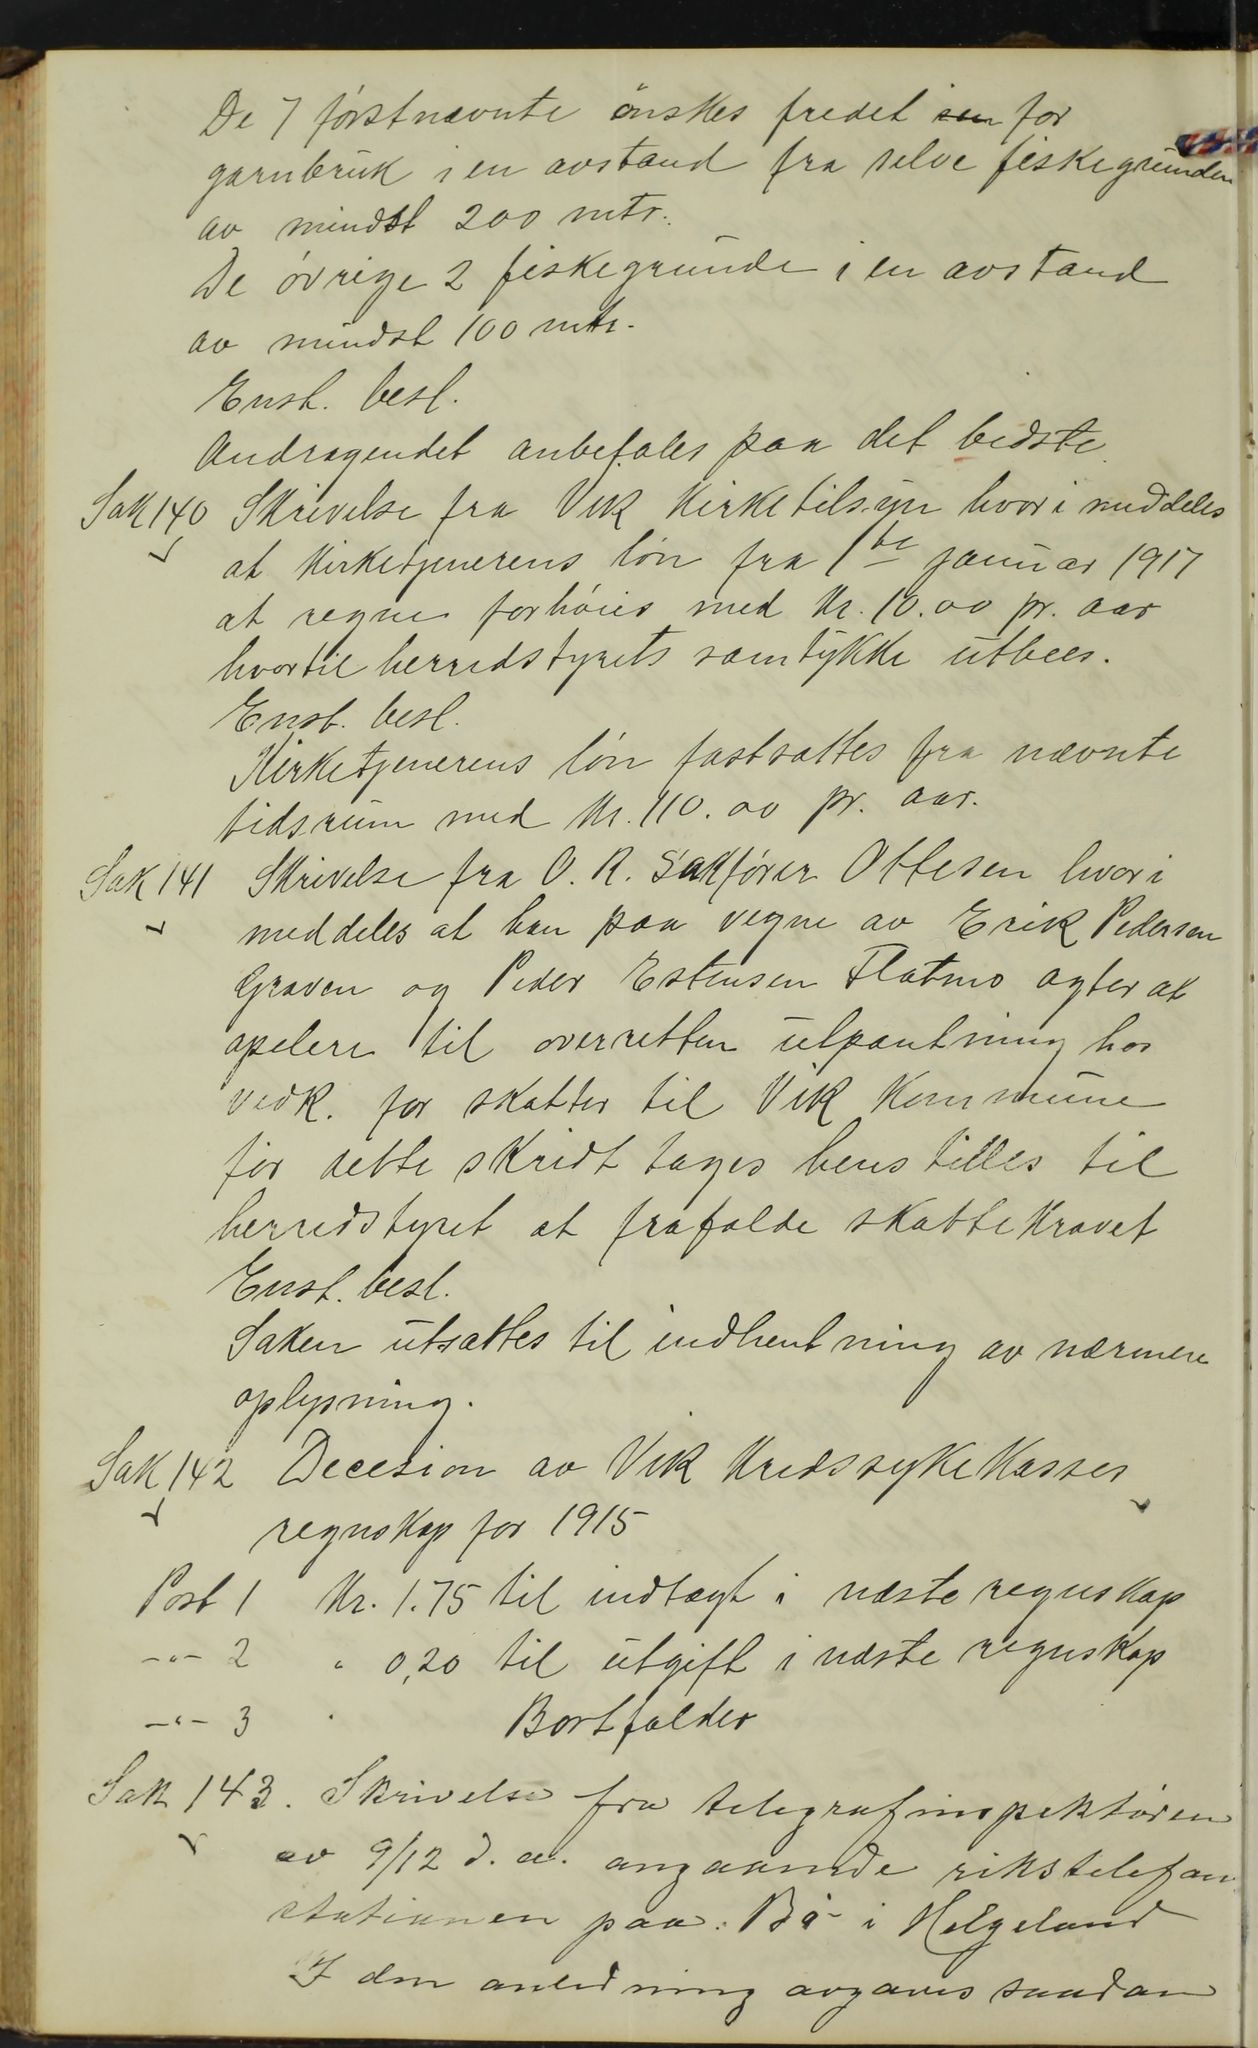 De 7 förstnævnte önskes fredet for
garnbruk i en avstand fra selve fiskegrunden
av mindst 200 mtr.
De övrige 2 fiskegrunde i en avstand
av mindst 100 mtr.
Enst. besl.
Andragendet anbefales paa det bedste
Sak 140 Skrivelse fra Vik Kirketilsyn hvori meddeles
at Kirketjenerens lön fra 1te januar 1917
at regne forhöies med Kr. 10.00 pr. aar
hvortil herredstyrets samtykke utbees.
Enst. besl.
Kirketjenerens lön fastsættes fra nævnte
tidsrum med Kr. 110.00 pr. aar.
Sak 141 Skrivelse fra O. R. Sakförer Ottesen hvori
meddeles at han paa vegne av Erik Pedersen
Graven og Peder Estensen Flatmo agter at
apelere til overretten utpantning hos
vedk. for skatter til Vik Kommune
för dette skridt tages henstilles til
herredstyret at frafalde skattekravet
Enst. besl.
Saken utsættes til indhentning av nærmere
oplysning.
Sak 142 Decesion av Vik Kredssykekasses
regnskap for 1915
Post 1 Kr. 1.75 til indtægt i næste regnskap
-"- 2 " 0,20 til utgift i næste regnskap
-"- 3 Bortfalder
Sak 143. Skrivelse fra telegrafinspektören
av 9/12 d. a. angaaende rikstelefon
stationen paa: Bö i Helgeland
I den anledning avgaves saadan